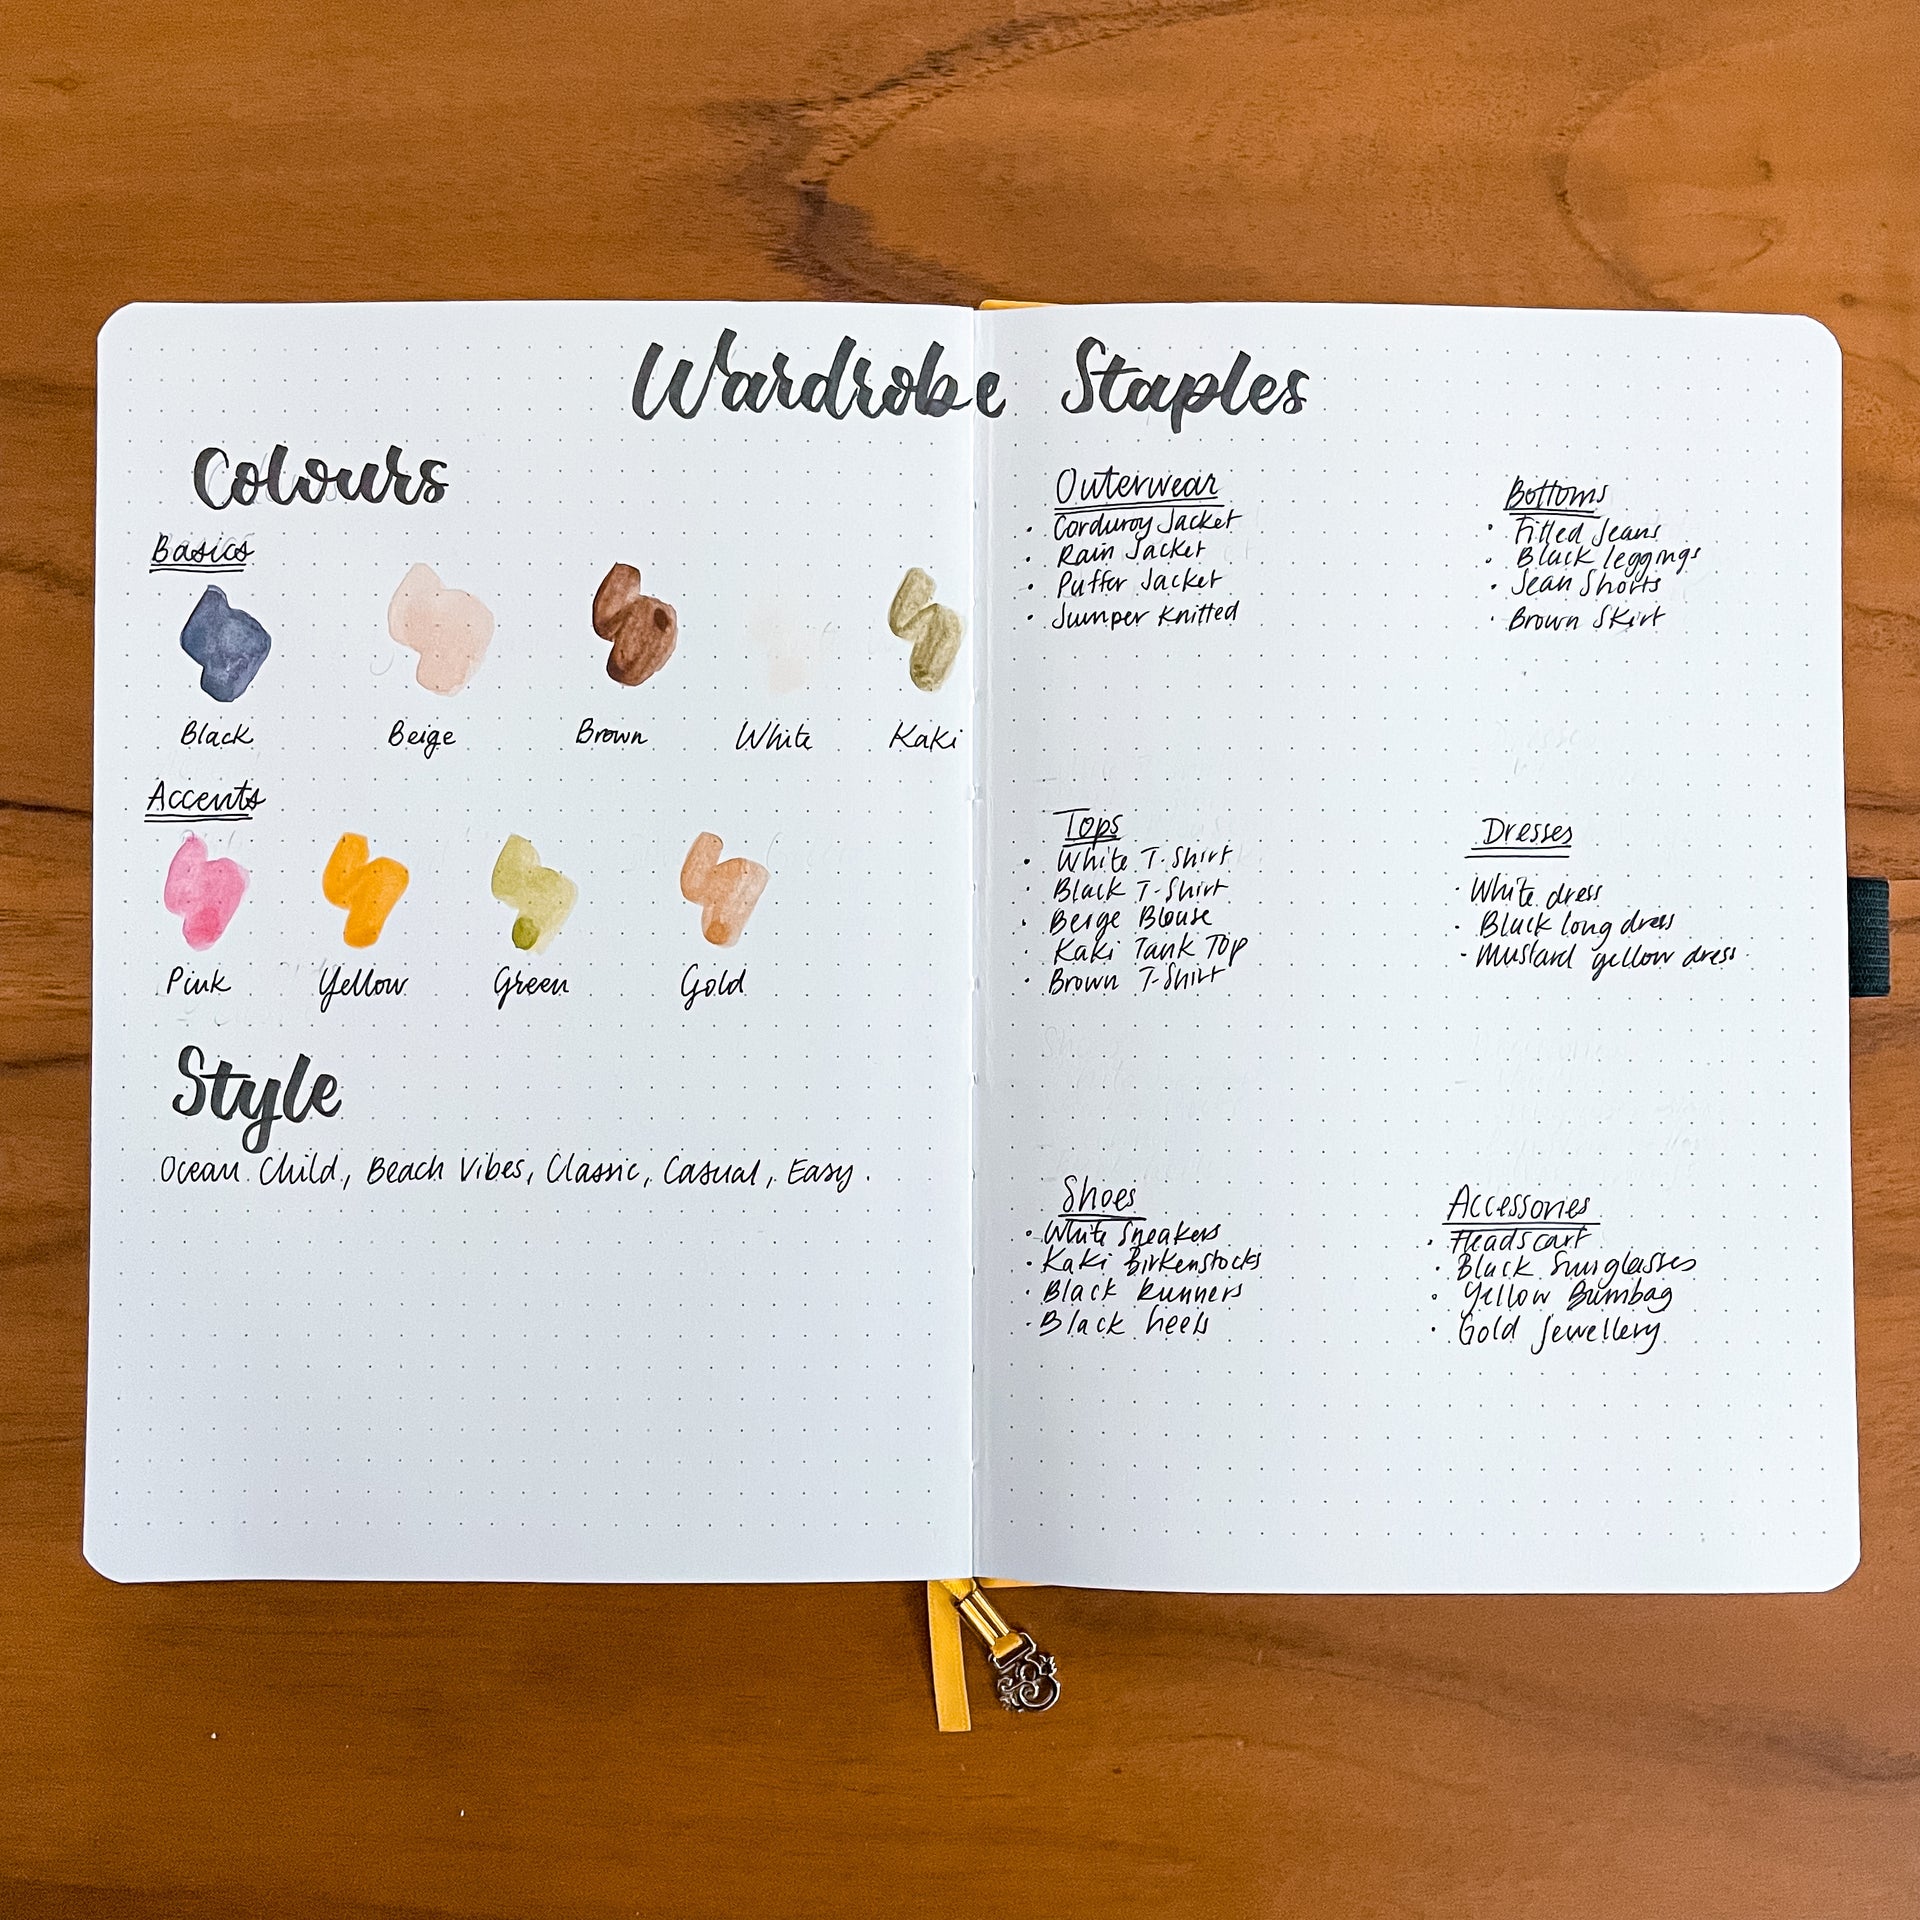 Wardrobe Staples
Colours
Basics
Black
Beige
Brown
White
Kaki
Accents
Pink
Yellow
Green
Gold
Style
Ocean Child, Beach Vibes, Classic, Casual, Easy.
Outerwear
• Corduroy Jacket
• Rain Jacket
• Puffer Jacket
• Jumper Knitted
Bottoms
• Fitted Jeans
• Black leggings
• Jean Shorts
• Brown Skirt
Tops
• White T-Shirt
• Black T-Shirt
• Beige Blouse
• Kaki Tank Top
• Brown T-Shirt
Dresses
• White dress
• Black long dress
• Mustard yellow dress
Shoes
• White Sneakers
• Kaki Birkenstocks
• Black Runners
• Black heels
Accessories
• Headscarf
• Black Sunglasses
• Yellow Bumbag
• Gold Jewellery